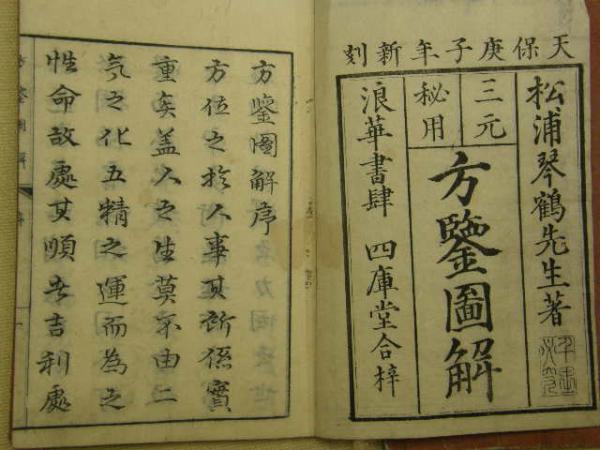 天保庚子年新刻
松浦琴鶴先生著
三元
秘用
方鑒圖解
浪華書肆 四庫堂合梓
方鑒圖解序
方位之於人事其所係實
重矣蓋人之生莫不由二
氣之化五精之運而為之
性命故處其順者吉利處